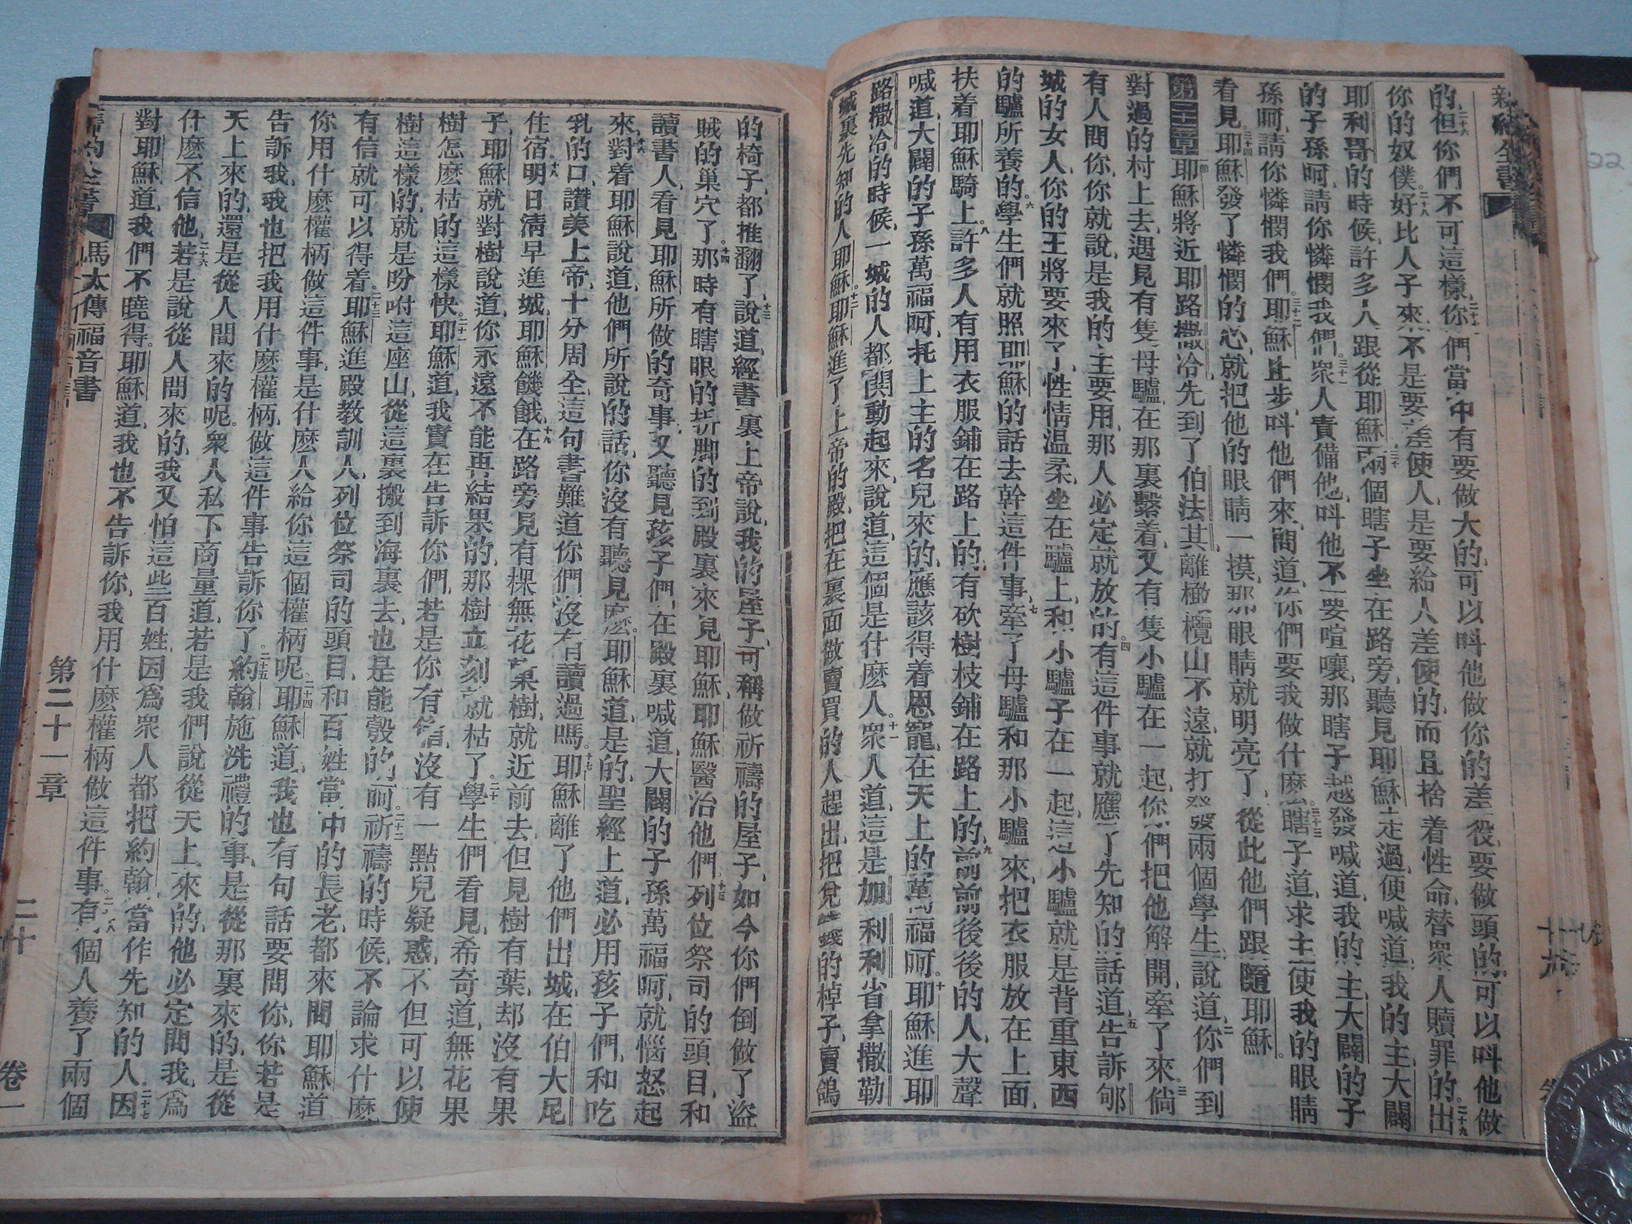 新約全書
的但你們不可這樣你們當中有要做大的可以呌他做你的差役要做頭的可以呌他做
你的奴僕好比人子來不是要差使人是要給人差使的而且捨着性命替衆人贖罪的出
耶利哥的時候許多人跟從耶穌兩個瞎子坐在路旁聽見耶穌走過便喊道我的主大闢
的子孫呵請你憐憫我們衆人責備他呌他不要喧嚷那瞎子越發喊道我的主大闢的子
孫呵請你憐憫我們耶穌止步呌他們來問道你們要我做什麼瞎子道求主使我的眼睛
看見耶穌發了憐憫的心就把他的眼睛一摸那眼睛就明亮了從此他們跟隨耶穌
第二十一章耶穌將近耶路撒冷先到了伯法其離橄欖山不遠就打發兩個學生說道你們到
對過的村上去遇見有隻母驢在那裏繫着又有隻小驢在一起你們把他解開牽了來倘
有人問你你就說是我的主要用那人必定就放的有這件事就應了先知的話道告訴郇
城的女人你的王將要來了性情溫柔坐在驢上和小驢子在一起這小驢就是背重東西
的驢所養的學生們就照耶穌的話去幹這件事牽了母驢和那小驢來把衣服放在上面
扶着耶穌騎上許多人有用衣服鋪在路上的有砍樹枝鋪在路上的前前後後的人大聲
喊道大闢的子孫萬福呵托上主的名兒來的應該得着恩寵在天上的萬福呵耶穌進耶
路撒冷的時候一城的人都閧動起來說道這個是什麼人衆人道這是加利利省拿撒勒
城裏先知的人耶穌耶穌進了上帝的殿把在裏面做賣買的人趕出把兌錢的棹子賣鴿
的椅子都推翻了說道經書裏上帝說我的屋子可稱做祈禱的屋子如今你們倒做了盜
賊的巢穴了那時有瞎眼的折脚的到殿裏來見耶穌耶穌醫冶他們列位祭司的頭目和
讀書人看見耶穌所做的奇事又聽見孩子們在殿裏喊道大闢的子孫萬福呵就惱怒起
來對着耶穌說道他們所說的話你沒有聽見麼耶穌道是的聖經上道必用孩子們和吃
乳的口讚美上帝十分周全這句書難道你們沒有讀過嗎耶穌離了他們出城在伯大尼
住宿明日淸早進城耶穌饑餓在路旁見有棵無花菓樹就近前去但見樹有葉却沒有果
子耶穌就對樹說道你永遠不能再結果的那樹立刻就枯了學生們看見希奇道無花果
樹怎麽枯的這樣快耶穌道我實在告訴你們若是你有信沒有一點兒疑惑不但可以使
樹這樣的就是吩咐這座山從這裏搬到海裏去也是能彀的呵祈禱的時候不論求什麽
有信就可以得着耶穌進殿教訓人列位祭司的頭目和百姓當中的長老都來問耶穌道
你用什麽權柄做這件事是什麽人給你這個權柄呢耶穌道我也有句話要問你你若是
告訴我我也把我用什麽權柄做這件事告訴你了約翰施洗禮的事是從那裏來的是從
天上來的還是從人間來的呢衆人私下商量道若是我們說從天上來的他必定問我爲
什麽不信他若是說從人間來的我又怕這些百姓因爲衆人都把約翰當作先知的人因
對耶穌道我們不曉得耶穌道我也不告訴你我用什麽權柄做這件事有個人養了兩個
新約全書 馬太傳福音書 第二十一章 二十 卷一